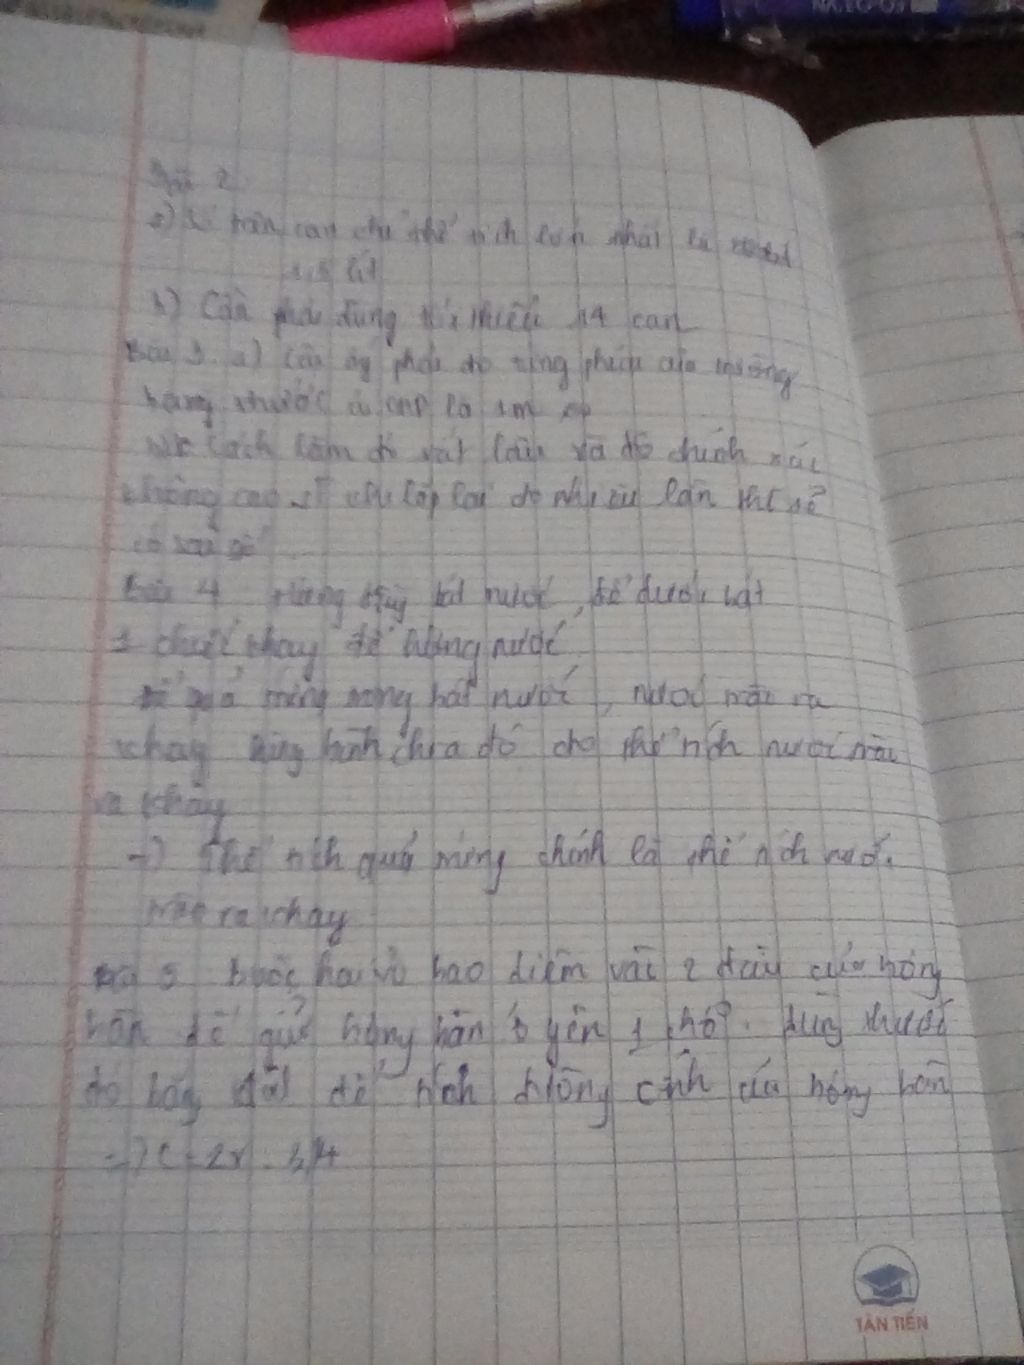 Bài 2
a) Số trên can chỉ thể tích lớn nhất là
1,5 lít
b) Cần phải dùng tối thiểu 14 can
Bài 3. a) Cần phải đo từng phần của
bằng thước có là 1m
cách làm đó rất lâu và độ chính xác
không cao vì cứ lặp lại đo nhiều lần thì sẽ
có sai số
Bài 4 dùng bát nước, để dưới bát
1 chiếc khay để hứng nước
thả quả trứng trong bát nước, nước tràn ra
khay dùng bình chia độ cho thể tích nước tràn
ra khay
=) Thể tích quả trứng chính là thể tích nước
tràn ra khay
Bài 5 bước hai vỏ bao diêm vào 2 đầu của bóng
bàn để giữ bóng bàn ở yên 1 chỗ. dùng thước
đo bán để tính đường của bóng bàn
=) C = 2r . 3,14
TÂN TIẾN